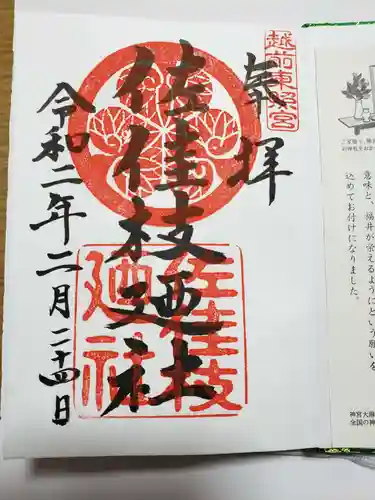 越前東照宮
奉拝
佐佳枝廼社
佐佳枝
廼社
令和二年二月二十四日
意味と、福井が栄えるようにという願いを
込めてお付けになりました。
神宮大麻
全国の神